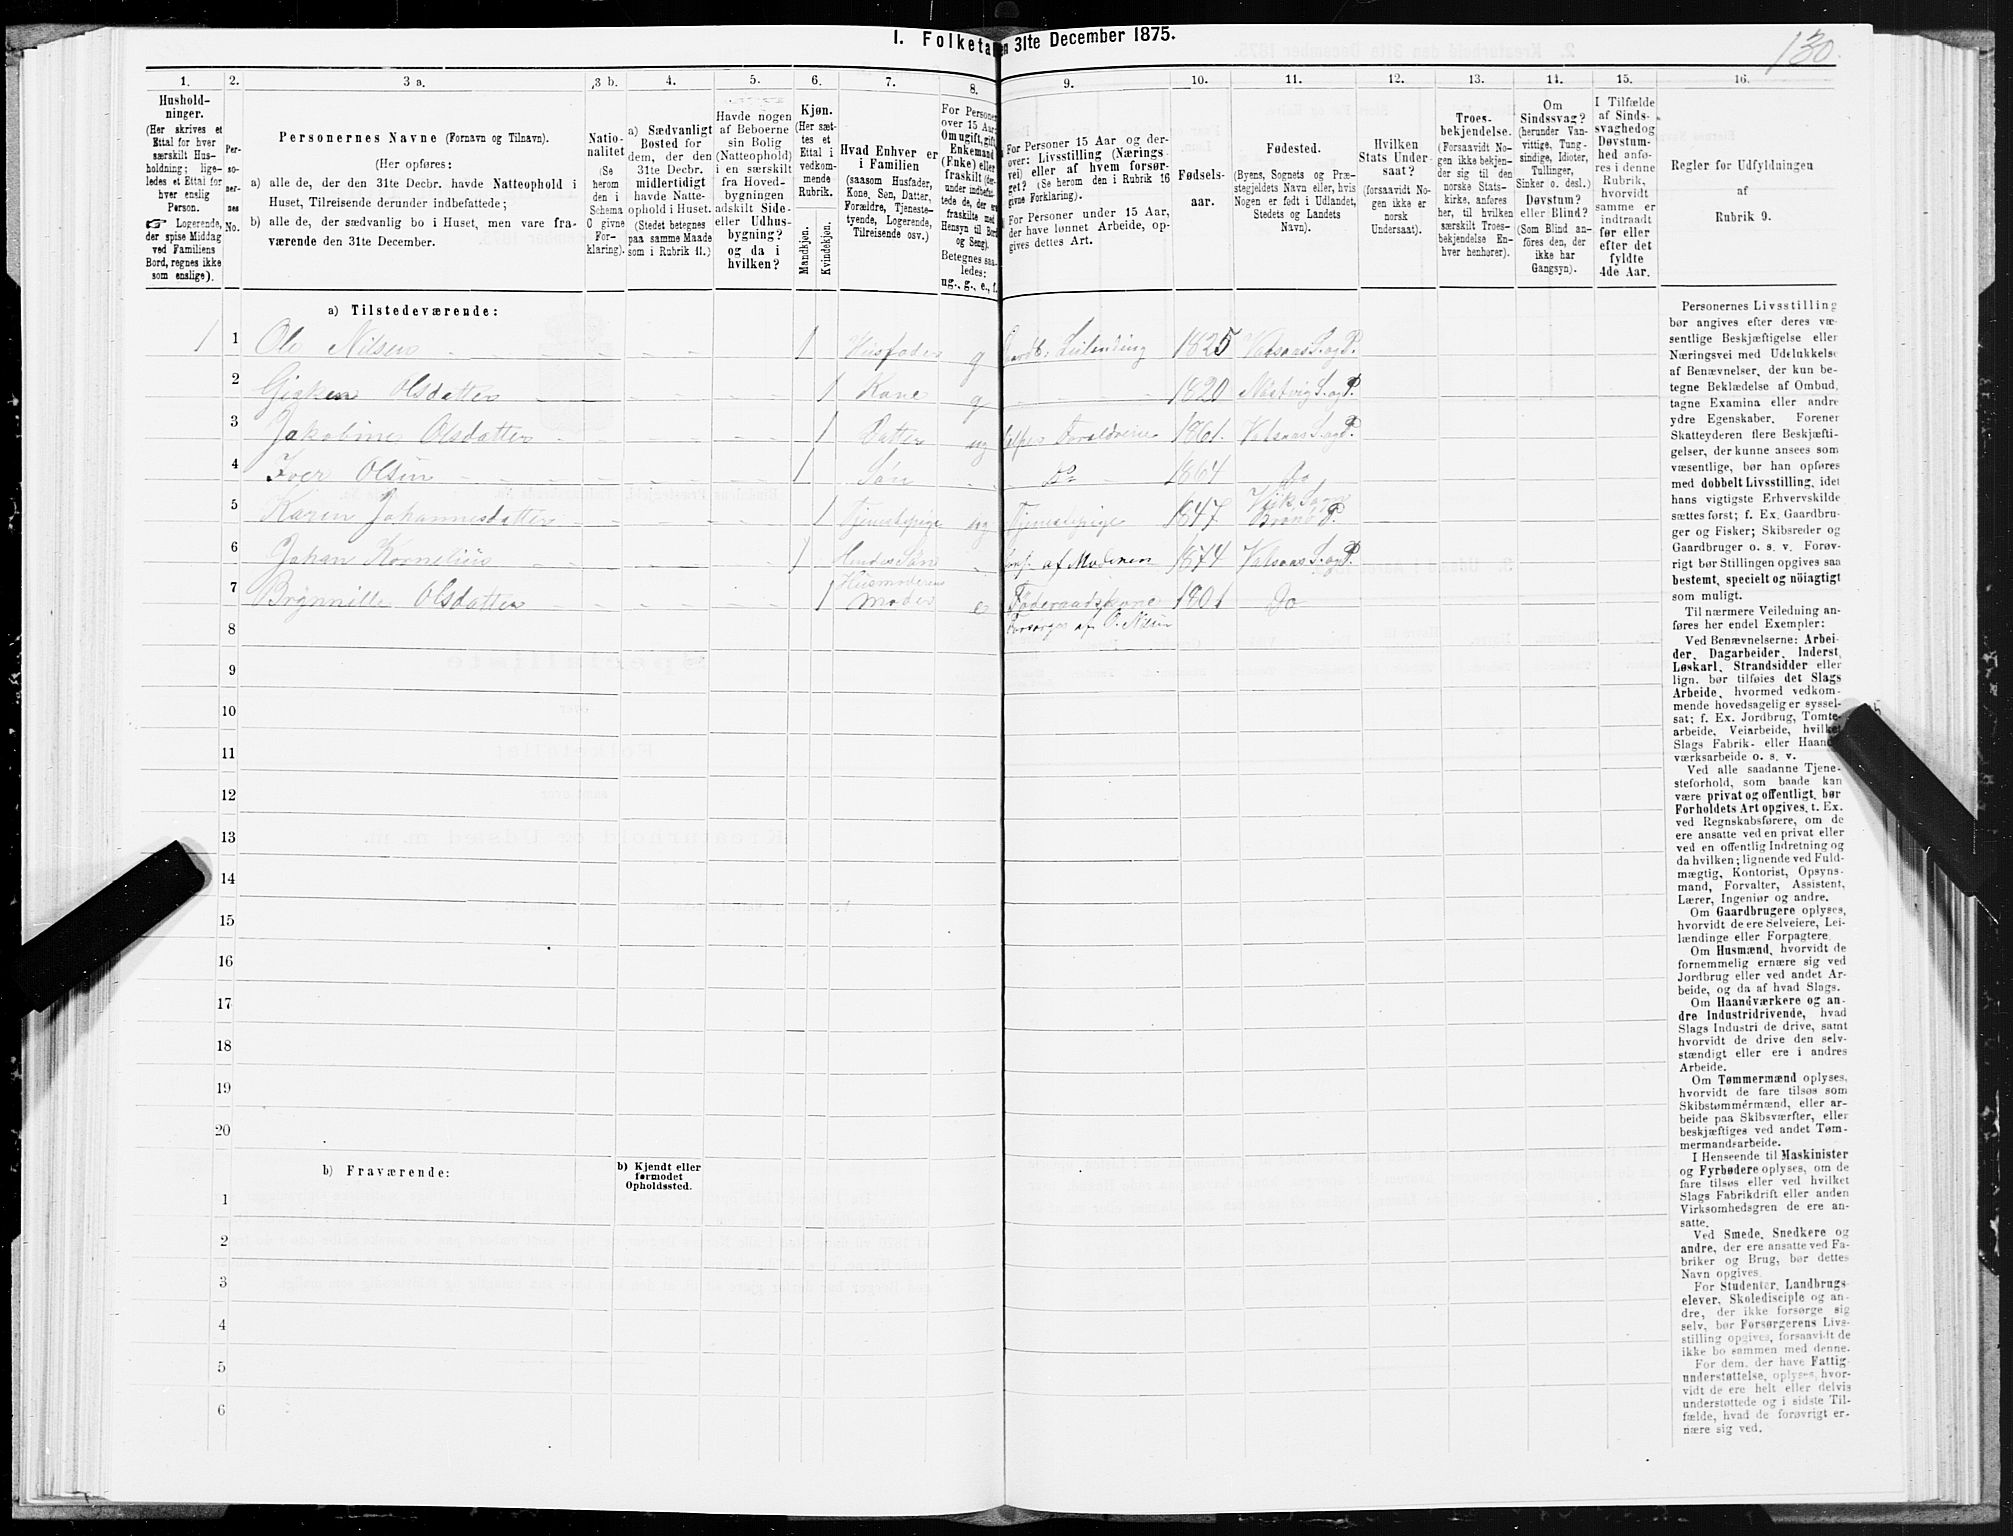 I. Folketa
en 31te December 1875.
130.
1.
2.
3 a.
3 b.
4.
5.
6.
7.
8.
9.
10.
11.
12.
13.
14.
15.
16.
Hushold-
ninger.
(Her skrives et
Ettal for hver
særskilt Hus-
holdning; lige-
ledes et Ettal for
hver enslig
Person.
☞ Logerende,
der spise Middag
ved Familiens
Bord, regnes ikke
som enslige).
Per-
so-
ner-
nes
No.
Personernes Navne (Fornavn og Tilnavn).
(Her opføres:
a) alle de, der den 31te Decbr. havde Natteophold i
Huset, Tilreisende derunder indbefattede;
b) alle de, der sædvanlig bo i Huset, men vare fra-
værende den 31te December.
Natio-
nalitet
(Se
herom
den i
Schema
O givne
For-
klaring).
a) Sædvanligt
Bosted for
dem, der den
31te Decbr.
midlertidigt
havde Natte-
ophold i Huset.
(Stedet betegnes
paa samme Maade
som i Rubrik 11.)
Havde nogen
af Beboerne
sin Bolig
(Natteophold)
i en særskilt
fra Hoved-
bygningen
adskilt Side-
eller Udhus-
bygning?
og da i
hvilken?
Kjøn.
(Her sæt-
tes et
Ettal i
vedkom-
mende
Rubrik.
Mandkjøn.
Kvindekjøn.
Hvad Enhver er
i Familien
(saasom Husfader,
Kone, Søn, Datter,
Forældre, Tjeneste-
tyende, Logerende,
Tilreisende osv.)
For Personer
over 15 Aar:
Om ugift, gift,
Enkemand
(Enke) eller
fraskilt (der-
under indbefat-
tede de, der ere
fraskilte med
Hensyn til Bord
og Seng).
Betegnes saa-
ledes:
ug., g., e., f.
For Personer 15 Aar og der-
over: Livsstilling (Nærings
vei) eller af hvem forsør-
get? (Se herom den i Rubrik 16
givne Forklaring).
For Personer under 15 Aar,
der have lønnet Arbeide, op-
gives dettes Art.
Fødsels-
aar.
Fødested.
(Byens, Sognets og Præ-
stegjeldets Navn eller, hvis
Nogen er født i Udlandet,
Stedets og Landets
Navn).
Hvilken
Stats Under-
saat?
(forsaavidt No-
gen ikke er
norsk
Undersaat).
Troes-
bekjendelse.
(Forsaavidt No-
gen ikke bekjen-
der sig til den
norske Stats-
kirke, anføres
her, til hvilken
særskilt Troes-
bekjendelse En-
hver henhører).
Om
Sindssvag?
(herunder Van-
vittige, Tung-
sindige, Idioter,
Tullinger,
Sinker o. desl.)
Døvstum?
eller Blind?
(Som Blind an-
føres den, der
ikke har
Gangsyn).
I Tilfælde
af Sinds-
svaghed og
Døvstum-
hed anfø-
res i denne
Rubrik,
hvorvidt
samme er
indtraadt
før eller
efter det
fyldte
4de Aar.
Regler for Udfyldningen
af
Rubrik 9.
a) Tilstedeværende:
1 1 Ole Nilsen 1 Husfader g Gaardbr. Leilending 1825 Valsnæs S. og P.
2 Olsdatter 1 Kone g 1820 S. og P.
3 Jakobine Olsdatter 1 Datter ug hjelper Forældrene 1861. Valsnæs S. og P.
4 Iver Olsen 1 Søn Do 1864 Do
5 Karen Johannesdatter 1 Tjenestepige ug Tjenestepige 1847 Viik Sogn
Brønø P.
6 Johan Kornelius 1 Hendes Søn af Moderen 1874 Valsnæs S. og P.
7 Olsdatter 1 Husmoderens
Moder e Føderaadskone 1801 Do
Forsørges af O. Nilsen
8
9
10
11
12
13
14
15
16
17
18
19
20
b) Fraværende:
b) Kjendt eller
formodet
Opholdssted.
1
2
3
4
5
6
Personernes Livsstilling
bør angives efter deres væ-
sentlige Beskjæftigelse eller
Næringsvei med Udelukkelse
af Benævnelser, der kun be-
tegne Beklædelse af Ombud,
tagne Examina eller andre
ydre Egenskaber. Forener
Skatteyderen flere Beskjæfti-
gelser, der kunne ansees som
væsentlige, bør han opføres
med dobbelt Livsstilling, idet
hans vigtigste Erhvervskilde
sættes først; f. Ex. Gaardbru-
ger og Fisker; Skibsreder og
Gaardbruger o. s. v. Forøv-
rigt bør Stillingen opgives saa
bestemt, specielt og nöiagtigt
som muligt.
Til nærmere Veiledning an-
føres her endel Exempler:
Ved Benævnelserne: Arbei-
der, Dagarbeider, Inderst,
Løskarl, Strandsidder eller
lign. bør tilføies det Slags
Arbeide, hvormed vedkom-
mende hovedsagelig er syssel-
sat; f. Ex. Jordbrug, Tomte-
arbeide, Veiarbeide, hvilket
Slags Fabrik- eller Haand-
værksarbeide o. s. v.
Ved alle saadanne Tjene-
steforhold, som baade kan
være privat og offentligt, bør
Forholdets Art opgives, t. Ex.
ved Regnskabsførere, om de
ere ansatte ved en privat eller
ved en offentlig Indretning og
da hvilken; lignende ved Fuld-
mægtig, Kontorist, Opsyns-
mand, Forvalter, Assistent,
Lærer, Ingeniør og andre.
Om Gaardbrugere oplyses,
hvorvidt de ere Selveiere, Lei-
lændinge eller Forpagtere.
Om Husmænd, hvorvidt de
fornemmelig ernære sig ved
Jordbrug eller ved andet Ar-
beide, og da af hvad Slags.
Om Haandværkere og an-
dre Industridrivende, hvad
Slags Industri de drive, samt
hvorvidt de drive den selv-
stændigt eller ere i andres
Arbeide.
Om Tømmermænd oplyses,
hvorvidt de fare tilsøs som
Skibstømmérmænd, eller ar-
beide paa Skibsværfter, eller
beskjæftiges ved andet Tøm-
mermandsarbeide.
I Henseende til Maskinister
og Fyrbødere oplyses, om de
fare tilsøs eller ved hvilket
Slags Fabrikdrift eller anden
Virksomhedsgren de ere an-
satte.
Ved Smede, Snedkere og
andre, der ere ansatte ved Fa-
briker og Brug, bør dettes
Navn opgives.
For Studenter, Landbrugs-
elever, Skoledisciple og an-
dre, der ikke forsørge sig
selv, bør Forsørgerens Livs-
stilling opgives, forsaavidt de
ikke bo sammen med denne.
For dem, der have Fattig-
understøttelse, oplyses, hvor-
vidt de ere helt eller delvis
understøttede og i sidste Til-
fælde, hvad de forøvrigt er-
nære sig ved.